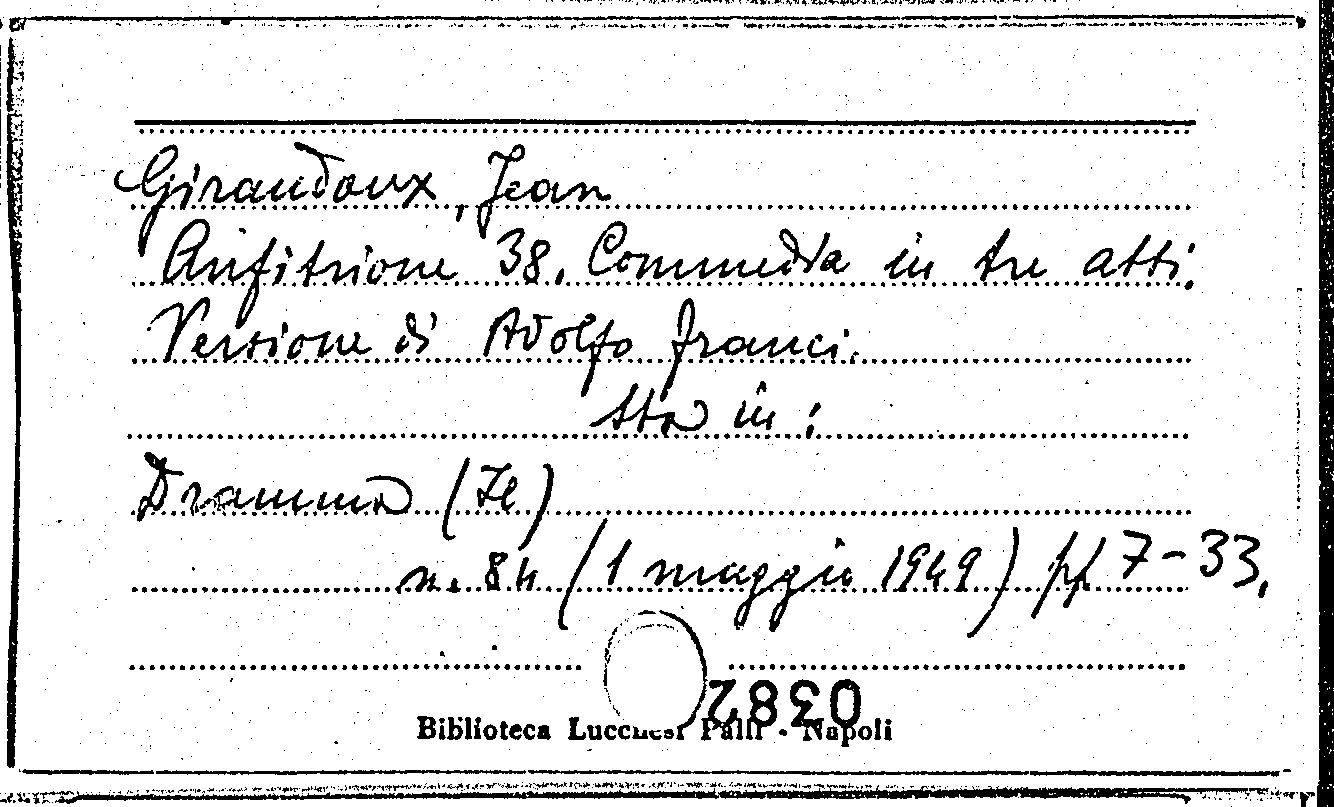 Giraudoux, Jean
Anfitrione 38. Commedia in tre atti.
Versione di Adolfo Franci.
Sta in:
Dramma (Il)
n. 84 (1 maggio 1949) pp. 7-33.
0382
Biblioteca Lucchesi Palli - Napoli